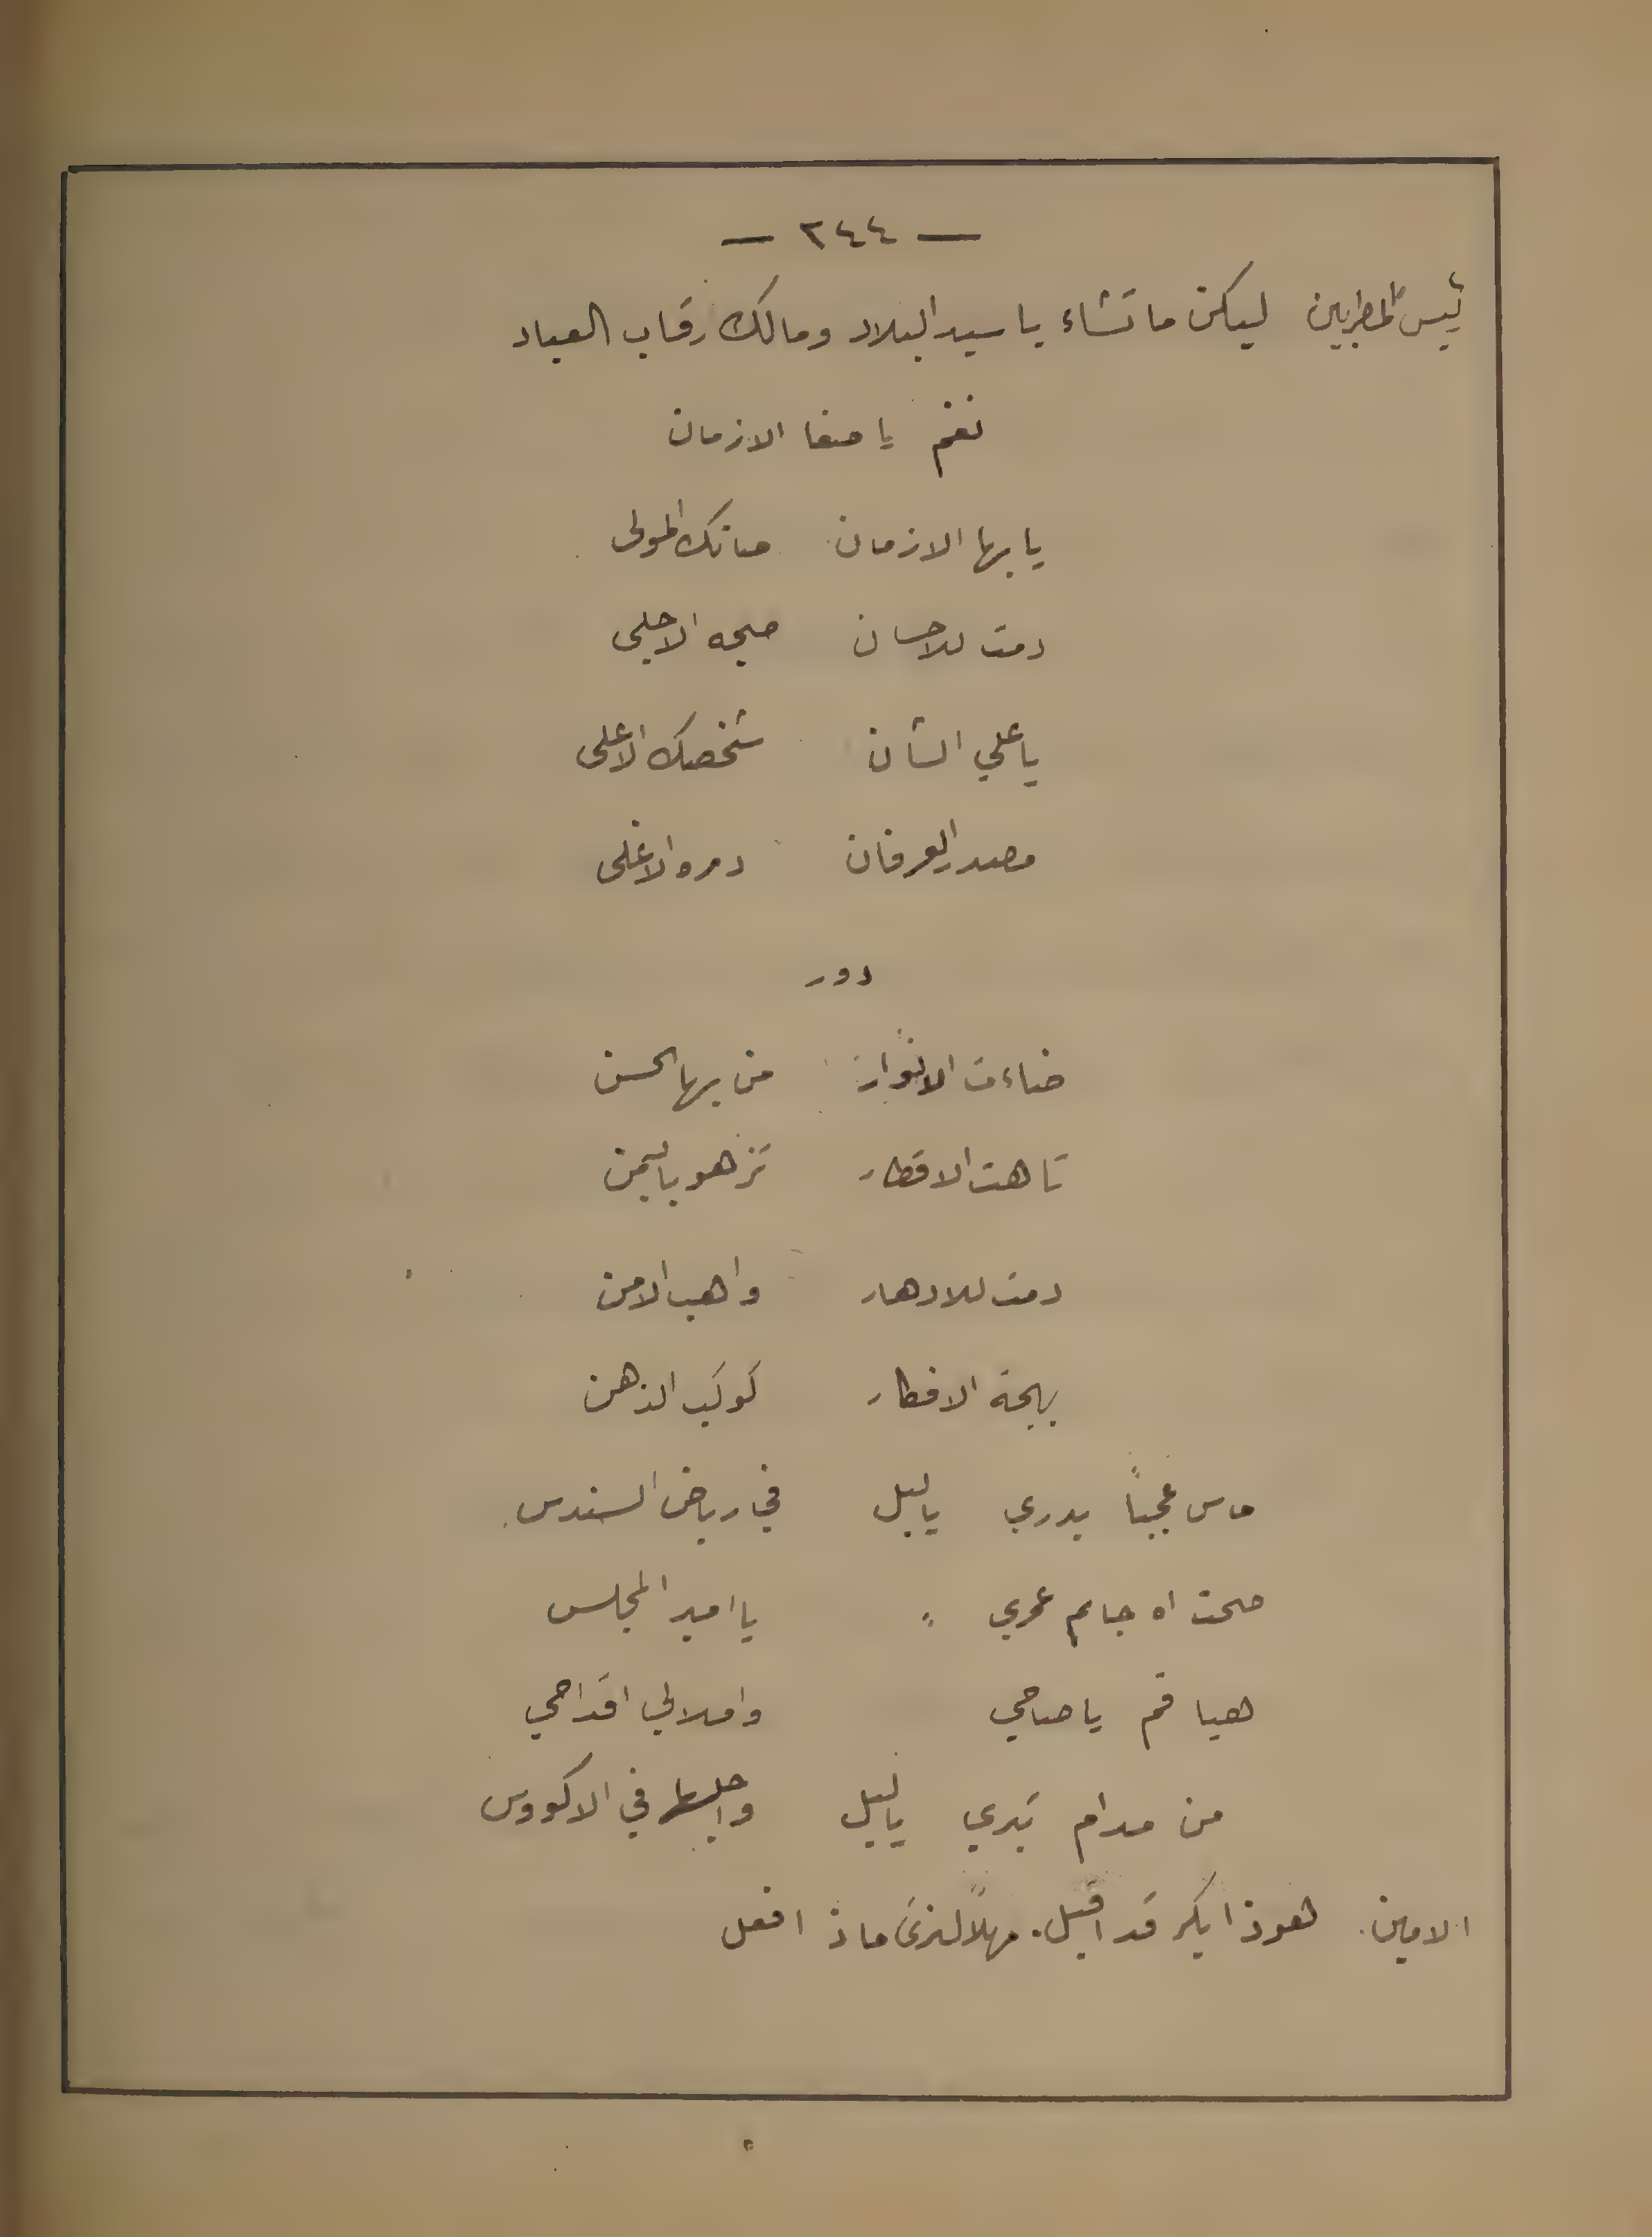 — ٢٤٤ —
ئيس المطربين ليكن ما تشاء يا سيد البلاد ومالك رقاب العباد
نغم يا صفا الازمان
يا بها الازمان صانك المولى
دمت للاحسان صبحه الاجلى
يا علي الشان شخصك الاعلى
مصدر العرفان دره الاغلى
دور
ضاءت الانوار من بها الحسن
تاهت الاقطار تزهو باليمن
دمت للادهار واهب الامن
بهجة الافطار كوكب الذهن
ماس عجباً بدري يا ليل في رياض السندس
صحت اه جاىم عمري " يا امير المجلس
هيا قم يا صاحي واملالي اقداحي
من مدام تبري يا ليل في الاكووس
الامين. هوذا بكر قد اقبل. مهلاً لنرى ماذ افعل